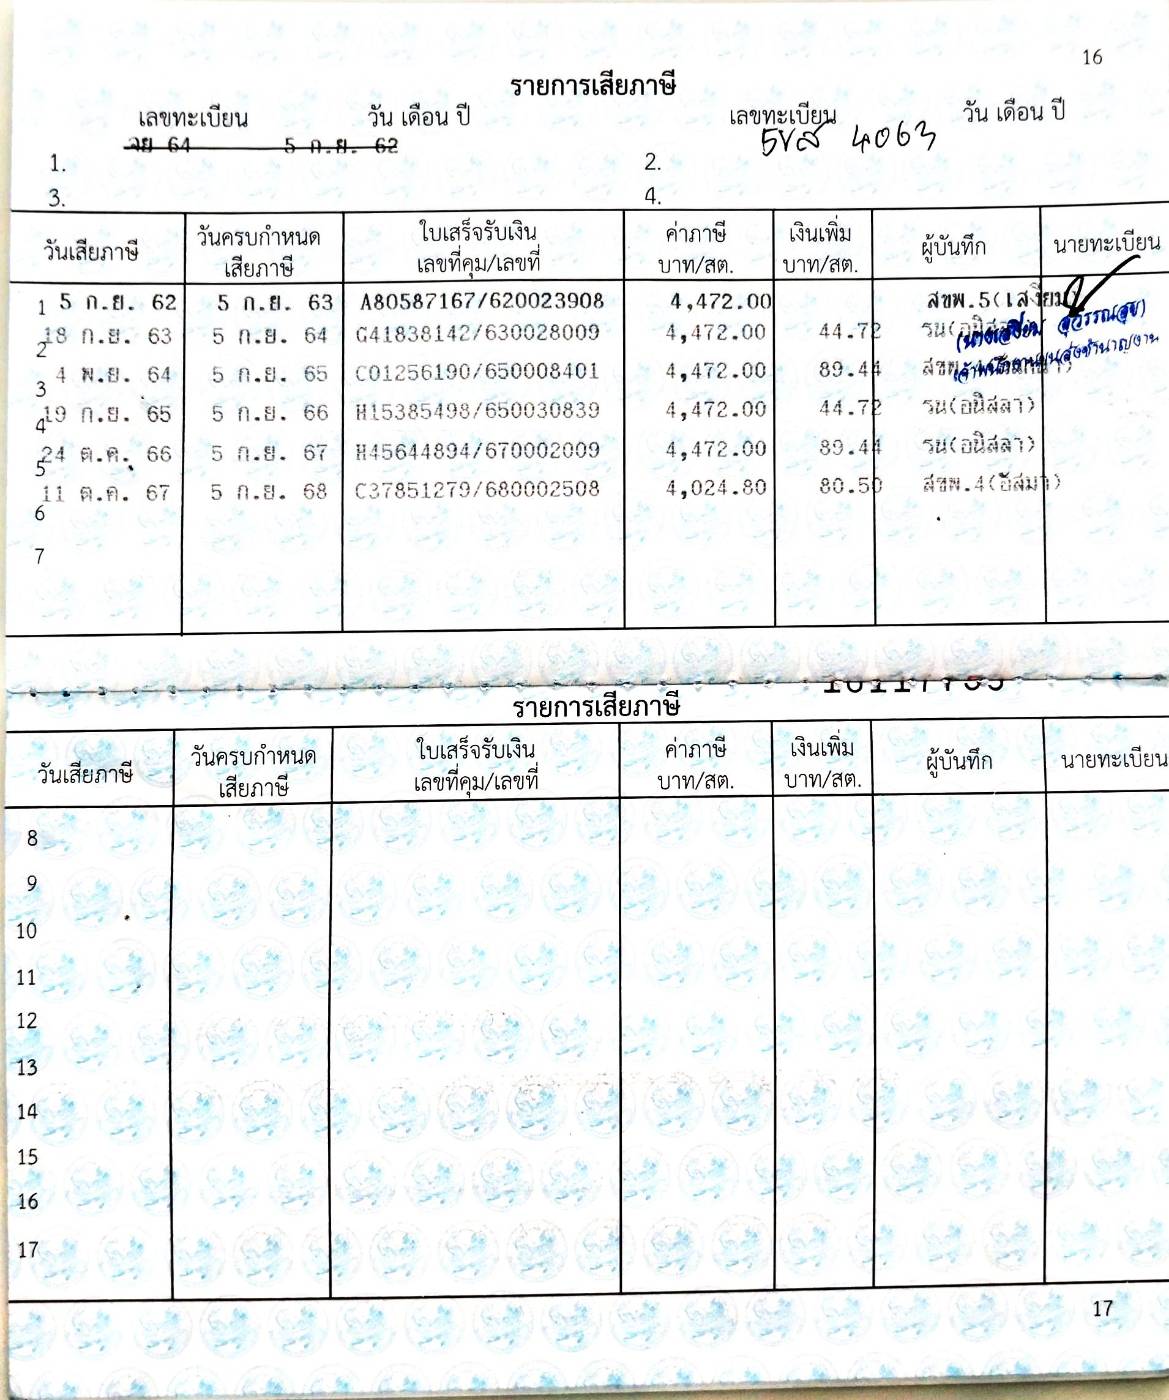 16
รายการเสียภาษี
เลขทะเบียน วัน เดือน ปี เลขทะเบียน วัน เดือน ปี
64 5 ก.ย. 62 5ขส 4063
1. 2.
3. 4.
วันเสียภาษี วันครบกำหนด เสียภาษี ใบเสร็จรับเงิน เลขที่คุม/เลขที่ ค่าภาษี บาท/สต. เงินเพิ่ม บาท/สต. ผู้บันทึก นายทะเบียน
1 5 ก.ย. 62 5 ก.ย. 63 A80587167/620023908 4,472.00 สขพ.5(เสงี่ยม)
2 18 ก.ย. 63 5 ก.ย. 64 G41838142/630028009 4,472.00 44.72 รน( (นางเสงี่ยม สุวรรณสุข)
3 4 พ.ย. 64 5 ก.ย. 65 C01256190/650008401 4,472.00 89.44 สขพ. เจ้าพนักงานขนส่งชำนาญงาน
4 19 ก.ย. 65 5 ก.ย. 66 H15385498/650030839 4,472.00 44.72 รน(อนิสลา)
5 24 ต.ค. 66 5 ก.ย. 67 H45644894/670002009 4,472.00 89.44 รน(อนิสลา)
6 11 ต.ค. 67 5 ก.ย. 68 C37851279/680002508 4,024.80 80.50 สขพ.4(อัสมา)
7
รายการเสียภาษี
วันเสียภาษี วันครบกำหนด เสียภาษี ใบเสร็จรับเงิน เลขที่คุม/เลขที่ ค่าภาษี บาท/สต. เงินเพิ่ม บาท/สต. ผู้บันทึก นายทะเบียน
8
9
10
11
12
13
14
15
16
17
17